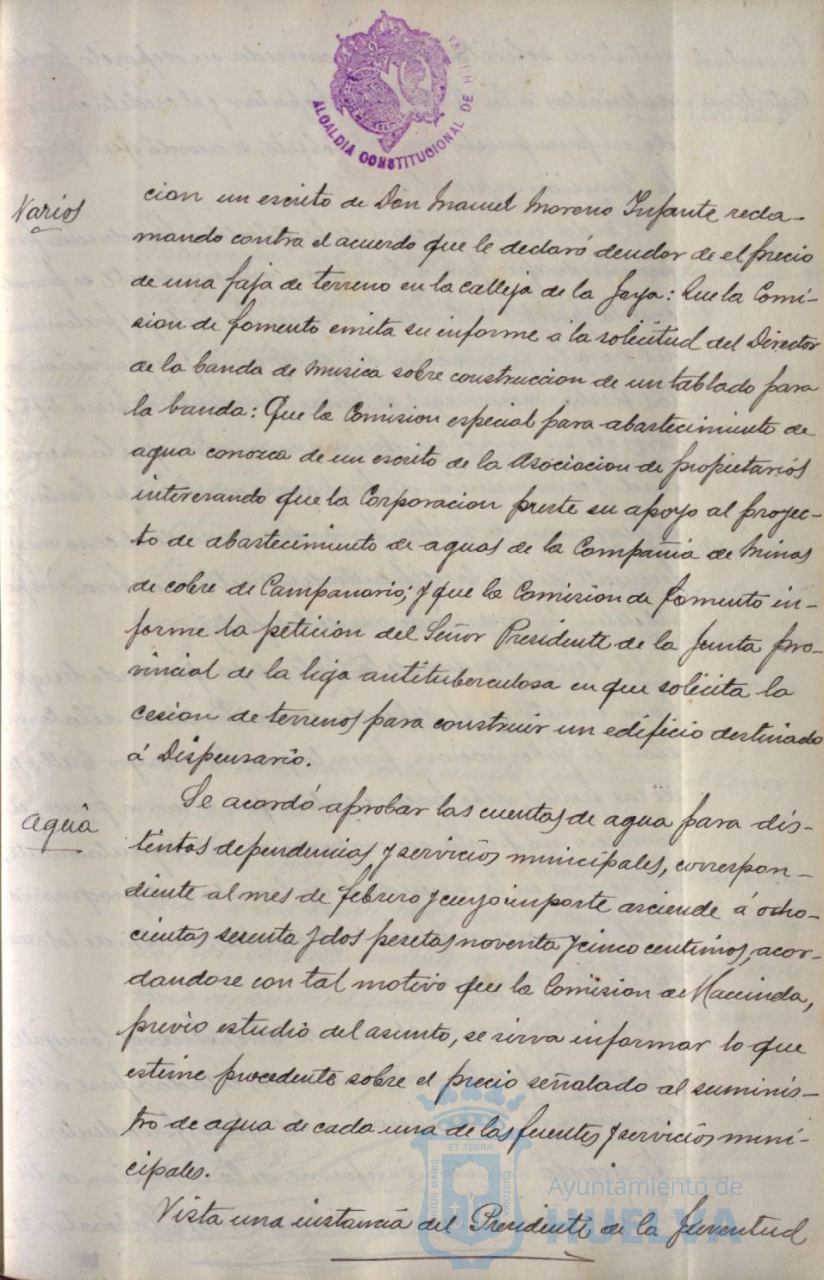 ALCALDIA CONSTITUCIONAL DE HUELVA
Varios
cion un escrito de Don Manuel Moreno Infante recla-
mando contra el acuerdo que le declaró deudor de el precio
de una faja de terreno en la calleja de la Joya: Que la Comi-
sion de fomento emita su informe á la solicitud del Director
de la banda de musica sobre construccion de un tablado para
la banda: Que la Comision especial para abastecimiento de
agua conozca de un escrito de la Asociacion de propietarios
interesando que la Corporacion preste su apoyo al proyec-
to de abastecimiento de aguas de la Compañia de Minas
de cobre de Campanario; y que la Comision de fomento in-
forme la petición del Señor Presidente de la Junta pro-
vincial de la liga antituberculosa en que solicita la
cesion de terrenos para construir un edificio destinado
á Dispensario.
Agua
Se acordó aprobar las cuentas de agua para dis-
tintas dependencias y servicios municipales, correspon-
diente al mes de febrero y cuyo importe asciende á ocho-
cientas sesenta y dos pesetas noventa y cinco centimos, acor-
dandose con tal motivo que la Comision de Hacienda,
previo estudio del asunto, se sirva informar lo que
estime procedente sobre el precio señalado al suminis-
tro de agua de cada una de las fuentes y servicios muni-
cipales.
Vista una instancia del Presidente de la Juventud
ET TERRÆ
PORTUS MARIS
CUSTODIA
Ayuntamiento de
HUELVA